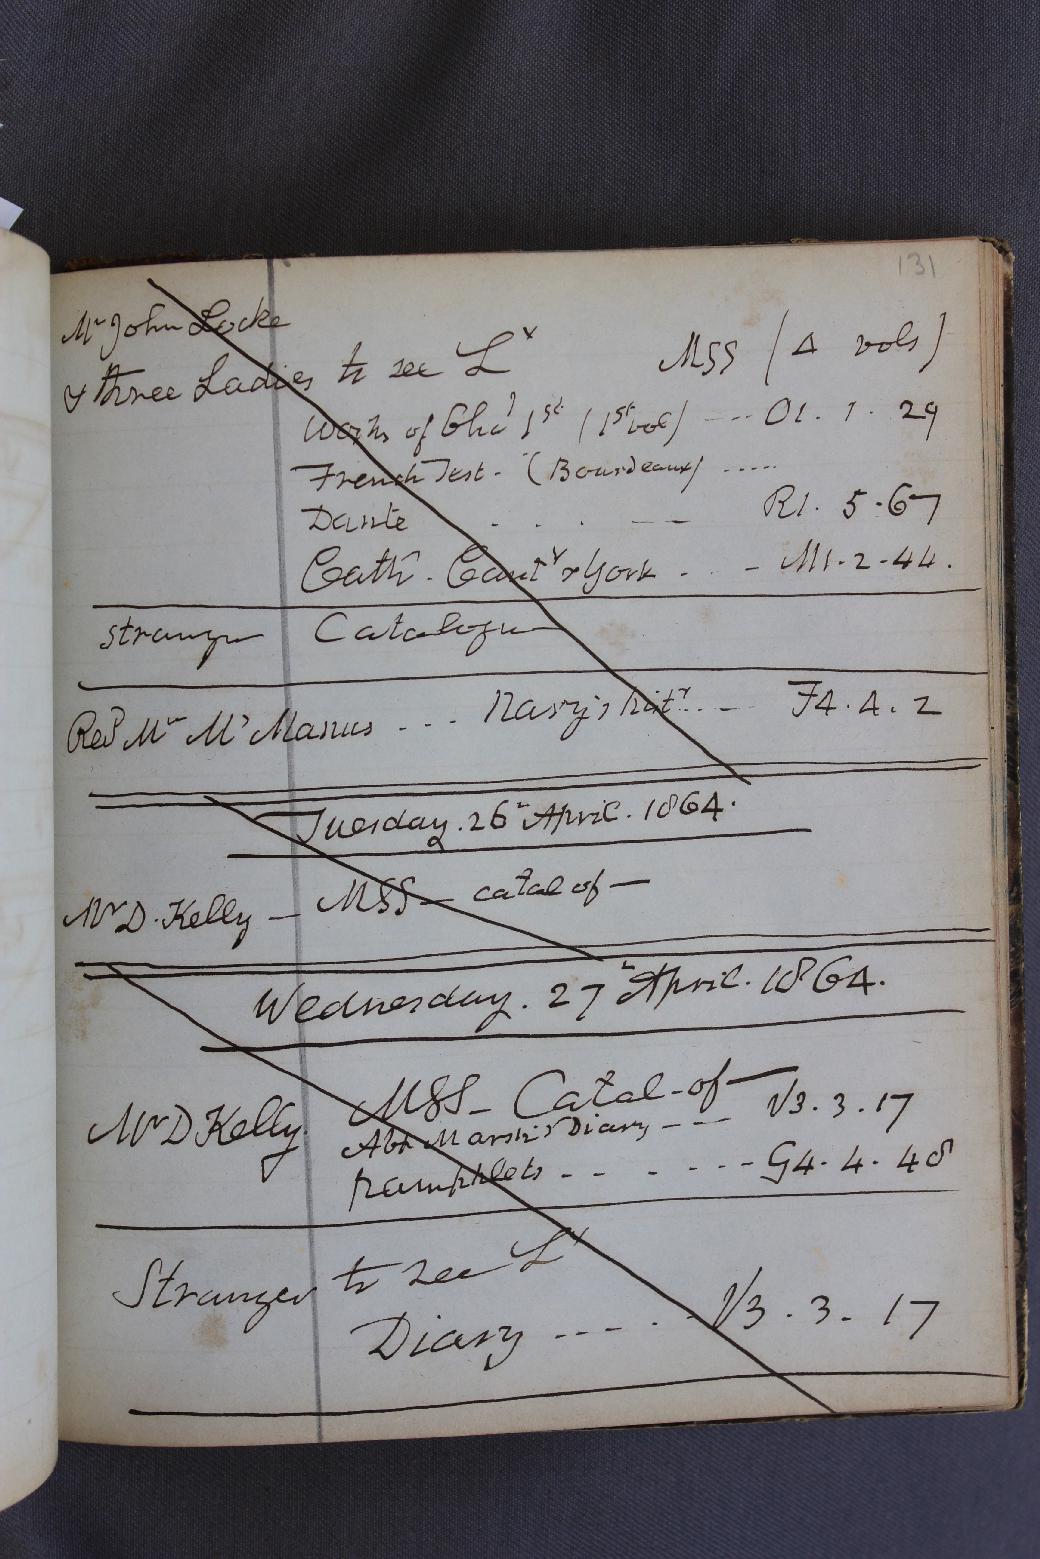 131
Mr John Locke
& three Ladies to see Ly MSS (4 vols)
Works of Chas 1st (1st vol) --- O1. 1. 29
French Test. (Bourdeaux) .....
Dante . . . -- R1. 5. 67
Cath. Canty & York . . - M1. 2. 44.
Stranger Catalogue
Revd Mr McManus . - - Navy's histy. . - - F4. 4. 2
Tuesday. 26th April. 1864.
Mr D. Kelly — MSS — catal of —
Wednesday. 27th April. 1864.
Mr D Kelly MSS — Catal-of —
Abp Marsh's Diary - - -- V3. 3. 17
Pamphlets - - - - - - - G4. 4. 48
Stranger to see Ly
Diary --- - . - V3. 3. 17